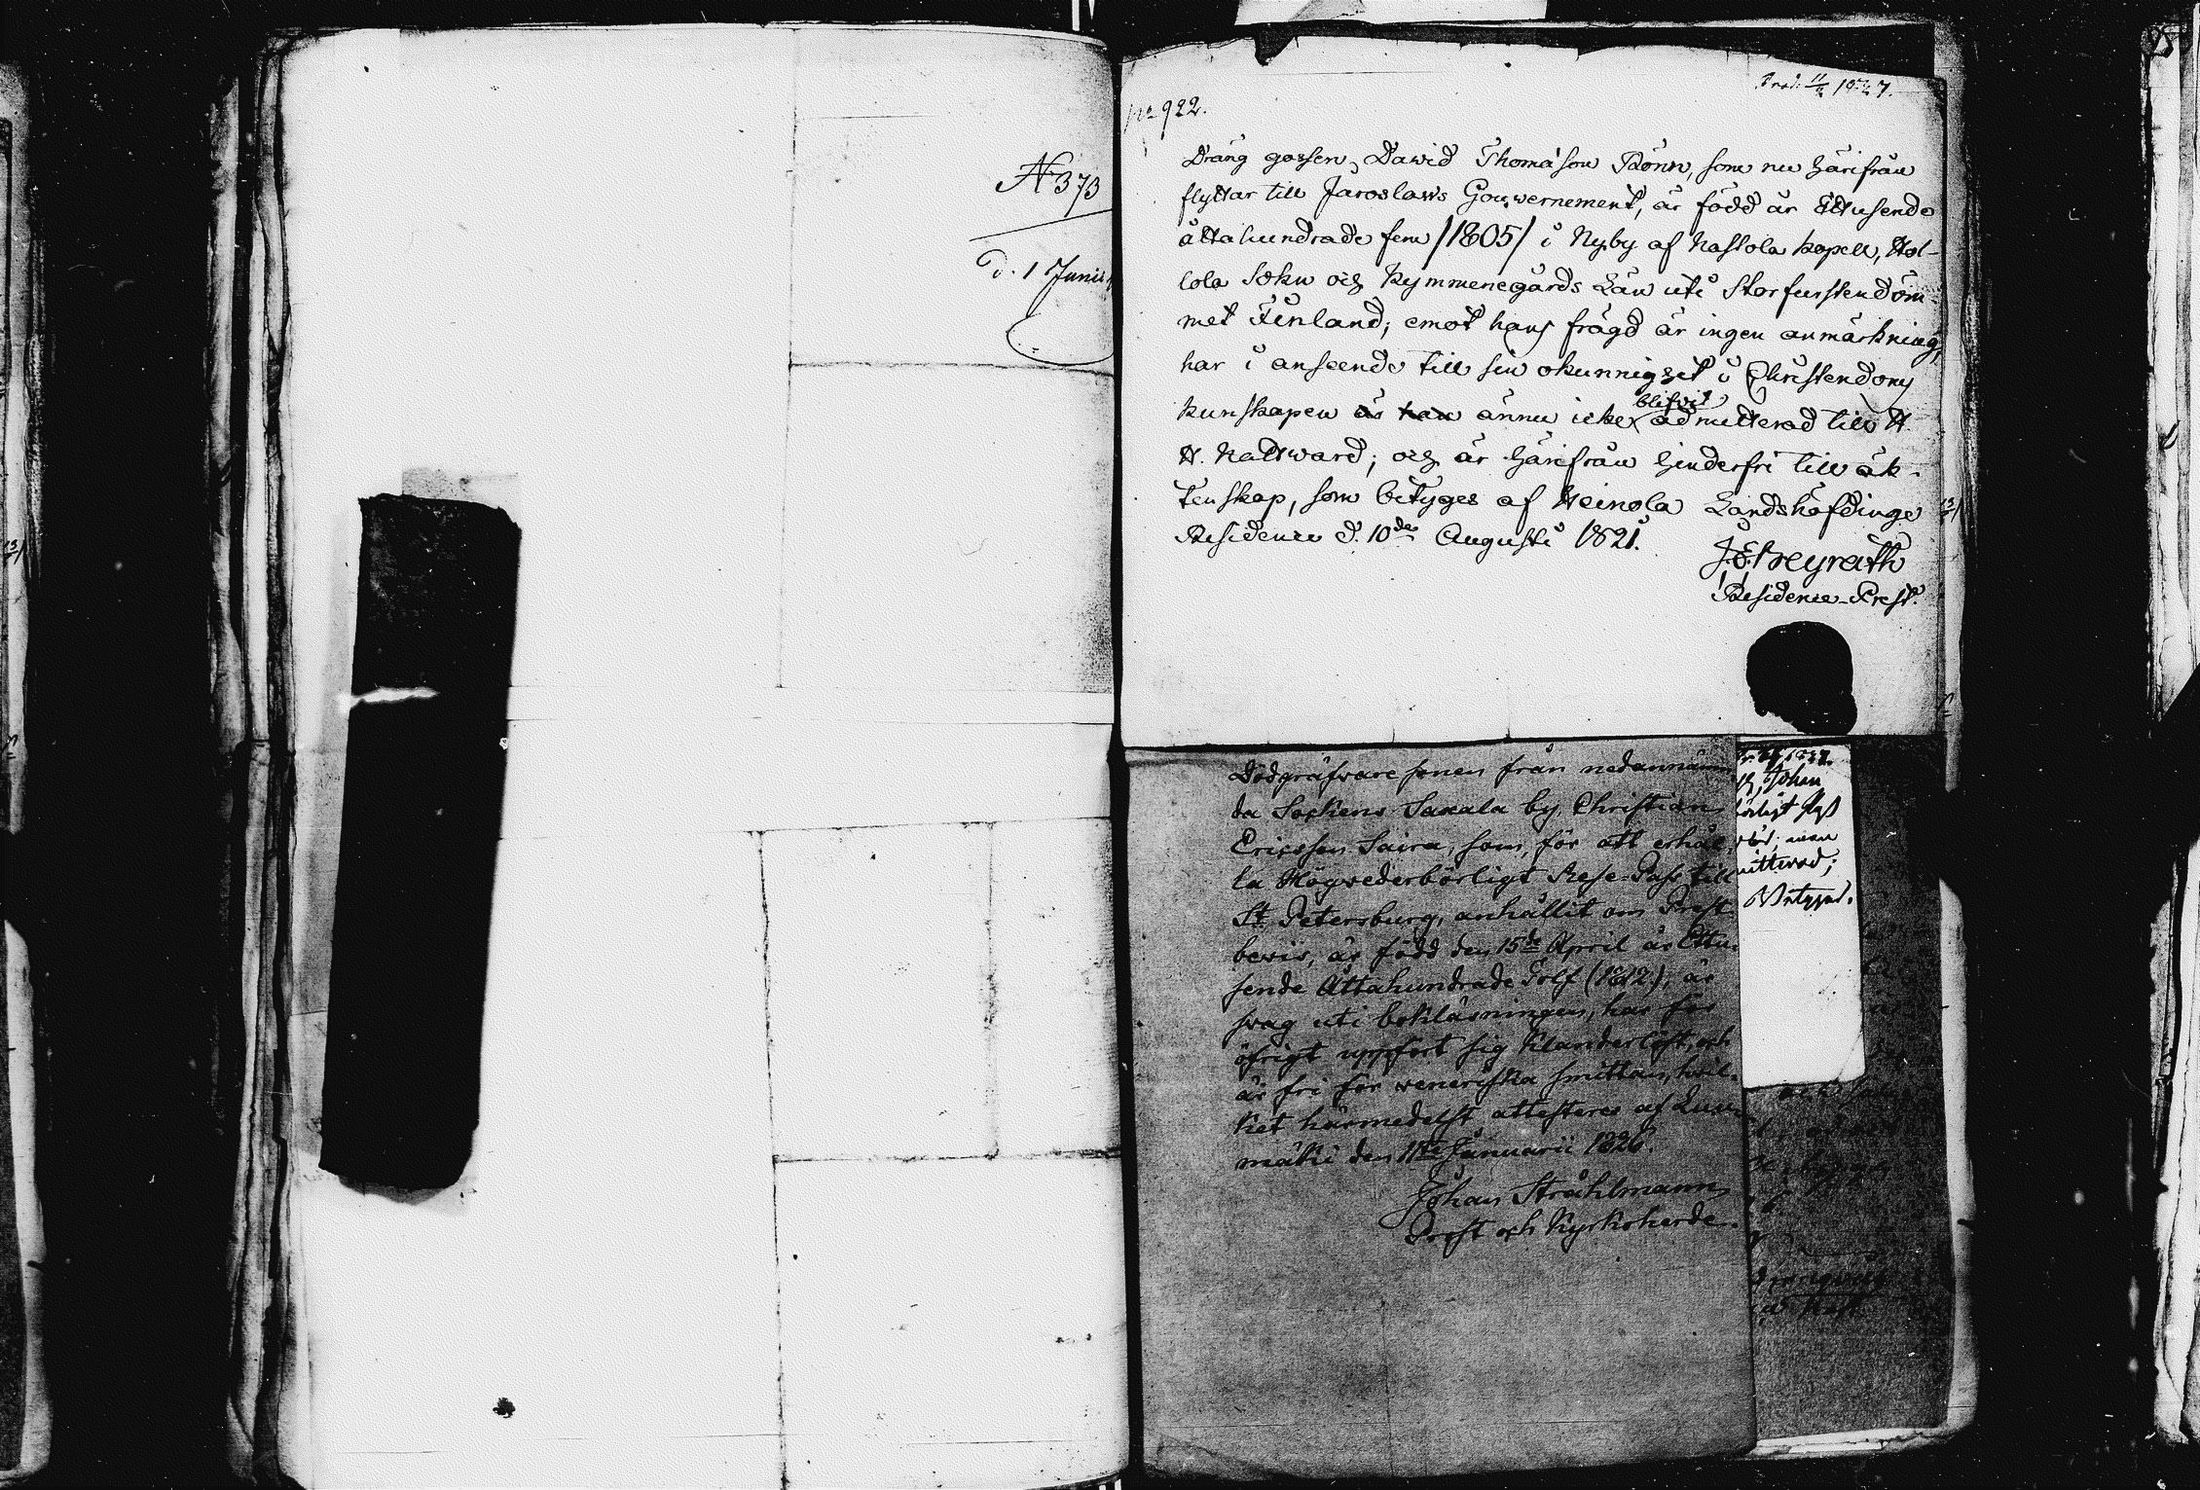 N 373
d. 1 Junii
No 922.
Dräng gossen, Dawid Thomasson Rönn, som nu härifrån
flyttar till Jaroslaws Gouvernement, är född år Ettusende
åttahundrade fem /1805/ i Nyby af Nastola kapell, Hol-
lola Sokn och Kymmenegårds Län uti Storfurstendöm-
met Finland; emot hans frägd är ingen anmärkning,
har i anseende till sin okunnighet i Christendoms
kunskapen är han ännu icke blifvit admitterad till H.
H. Nattward; och är härifrån hinderfri till äk-
tenskap, som betyges af Heinola Landshöfdinge
Residence d. 10de Augusti 1821.
Residence-Prest.
Dödgräfware sonen från nedannämn
da Sockens Saxala by, Christian
Ericsson Saira, som, för att erhål
la Högvederbörligt Rese-Pass till
St. Petersburg, anhållit om Prest
bevis, är född den 15de April år Ettu-
sende Åttahundrade Tolf (1812), är
svag uti bokläsningen, har för
öfrigt uppfört sig klanderlöst, och
är fri för veneriska smittan, hvil-
ket härmedelst attesteras af Luu
mäki den 11te Januarii 1826.
Johan Stråhlmann
Prost och Kyrkoherde.
Johan
mitterad;